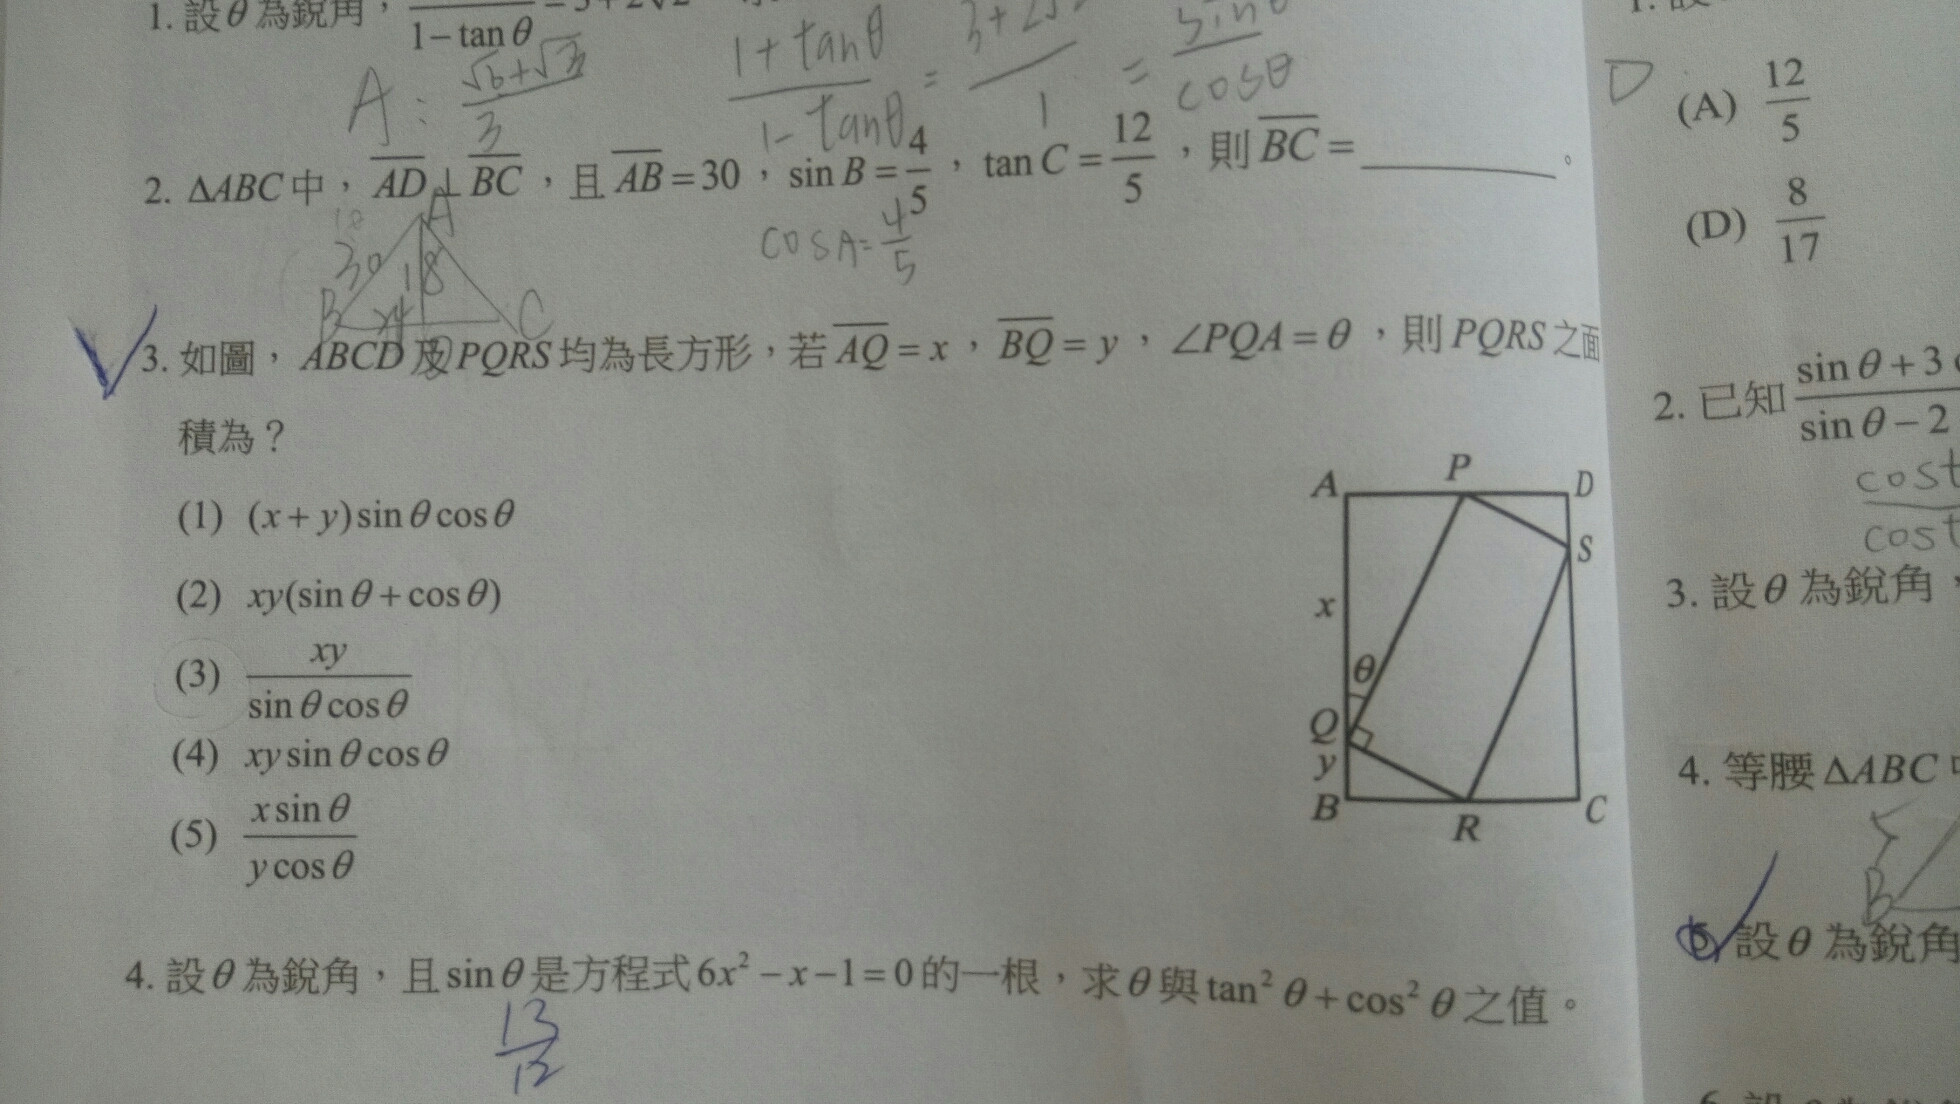 1. 設θ為銳角,
1-tanθ
A: (√6+√3)/3
(1+tanθ)/(1-tanθ) = /1 = sinθ/cosθ
2. ΔABC中, \overline{AD}⊥\overline{BC},且\overline{AB}=30,sin B=4/5,tan C=12/5,則\overline{BC}=________。
cosA=4/5
A
30 18
B C
3. 如圖,ABCD及PQRS均為長方形,若\overline{AQ}=x,\overline{BQ}=y,∠PQA=θ,則PQRS之面
積為?
(1) (x+y)sinθcosθ
(2) xy(sinθ+cosθ)
(3) xy/(sinθcosθ)
(4) xy sinθcosθ
(5) (x sinθ)/(y cosθ)
A P D
S
x
θ
Q
y
B R C
4. 設θ為銳角,且sinθ是方程式6x²-x-1=0的一根,求θ與tan²θ+cos²θ之值。
13/12
D (A) 12/5
(D) 8/17
2. 已知 (sinθ+3)/(sinθ-2)
3. 設θ為銳角,
4. 等腰ΔABC
B
設θ為銳角